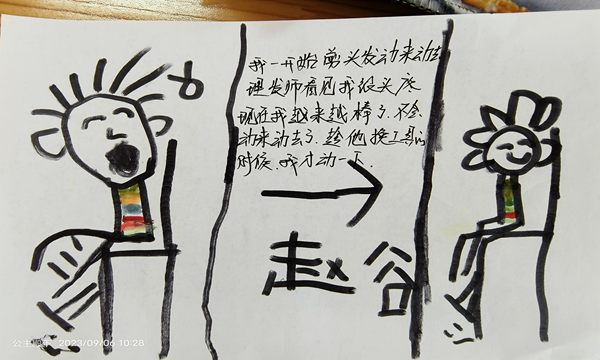 我一开始剪头发动来动去
理发师看见我很头疼
现在我越来越棒了.不会
动来动去了.趁他换工具的
时候.我才动一下.
赵谷
2023/09/06 10:28